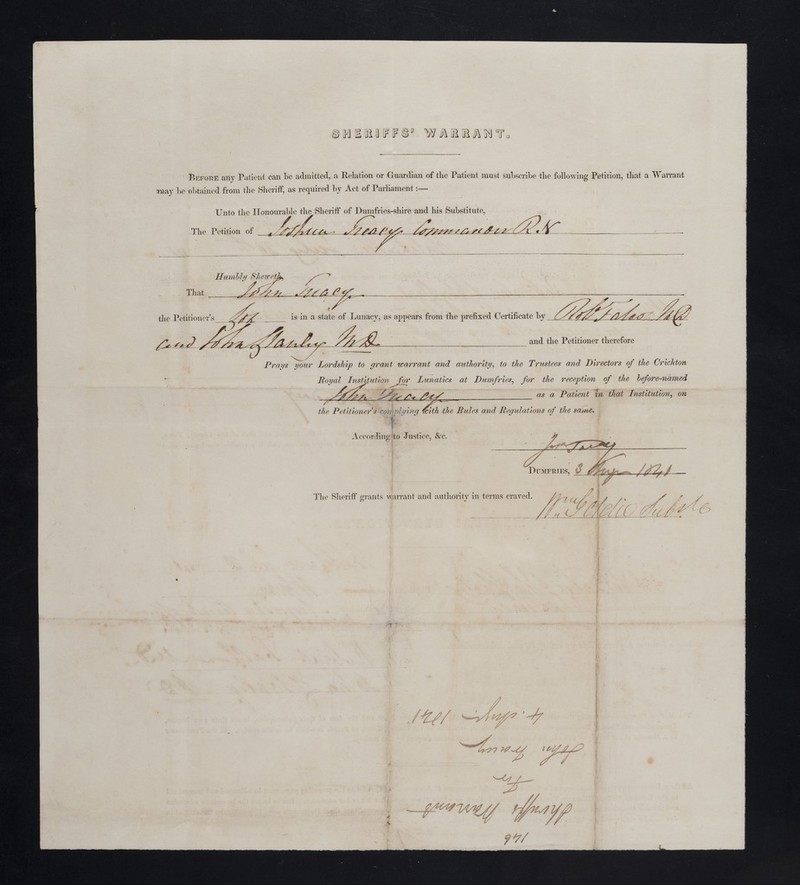 SHERIFFS' WARRANT.
BEFORE any Patient can be admitted, a Relation or Guardian of the Patient must subscribe the following Petition, that a Warrant
may be obtained from the Sheriff, as required by Act of Parliament :—
Unto the Honourable the Sheriff of Dumfries-shire and his Substitute,
The Petition of Joshua Treacy Commander R.N
Humbly Sheweth,
That John Treacy
the Petitioner's Son is in a state of Lunacy, as appears from the prefixed Certificate by Robt Fates MD
and John Stanley MD. and the Petitioner therefore
Prays your Lordship to grant warrant and authority, to the Trustees and Directors of the Crichton
Royal Institution for Lunatics at Dumfries, for the reception of the before-named
John Treacy as a Patient in that Institution, on
the Petitioner's complying with the Rules and Regulations of the same.
According to Justice, &c.
DUMFRIES, 3 1841
The Sheriff grants warrant and authority in terms craved.
Wm Goldie Subste
146
Sheriffs Warrant
For
John Treacy
4 1841